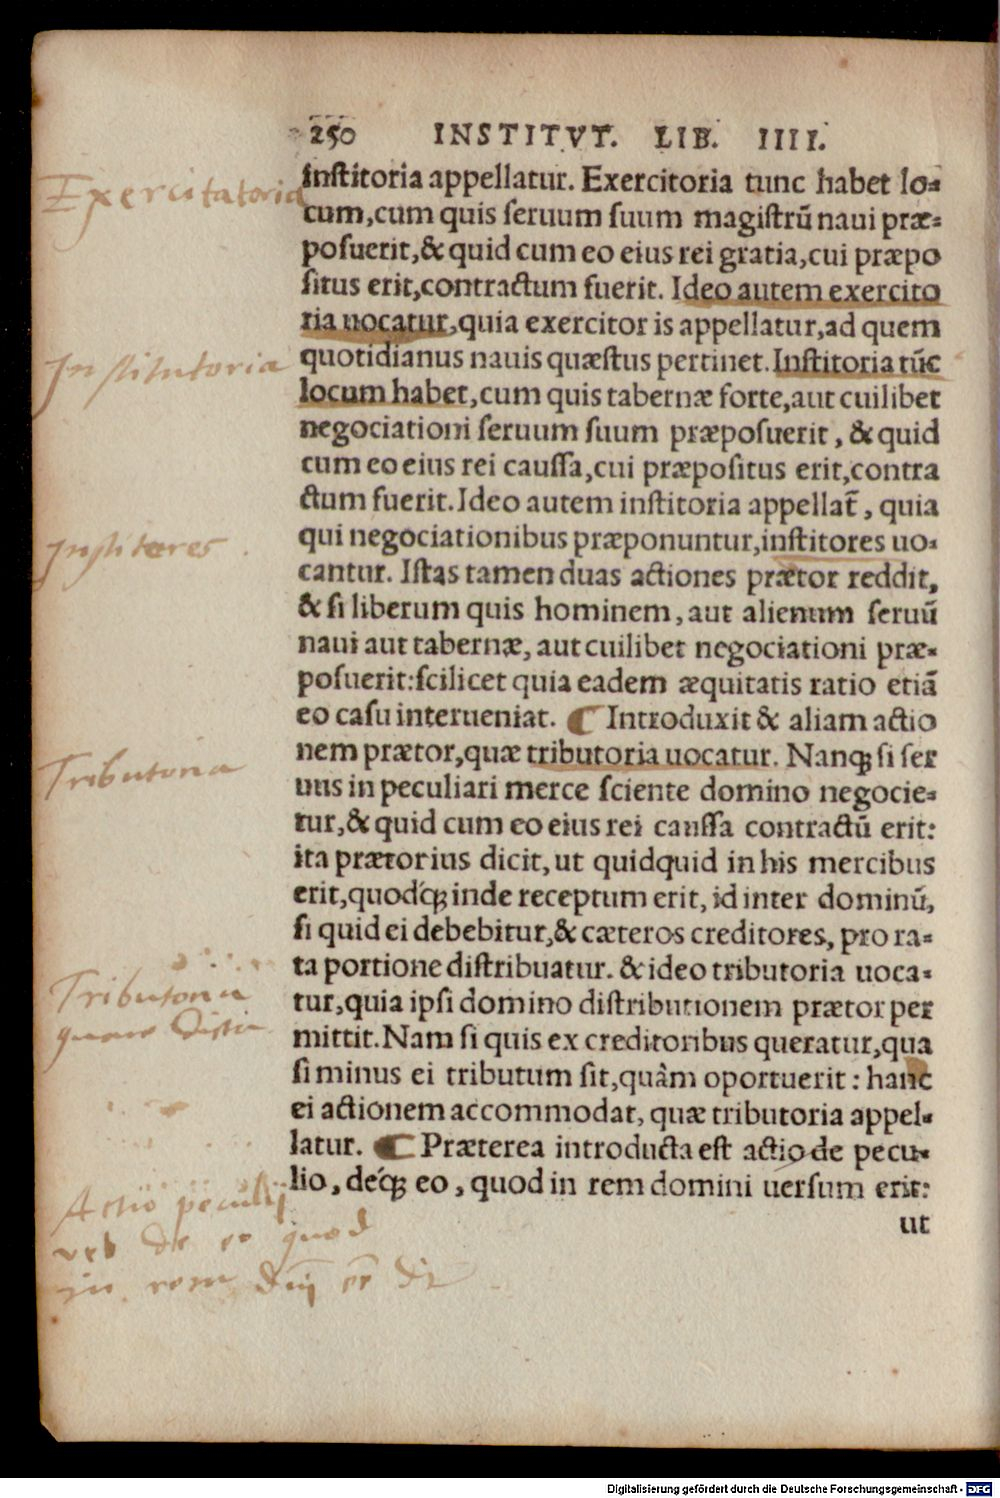 250 INSTITVT. LIB. IIII.
institoria appellatur. Exercitoria tunc habet lo-
cum,cum quis seruum suum magistrū naui præ-
posuerit,& quid cum eo eius rei gratia,cui præpo
situs erit,contractum fuerit. Ideo autem exercito
ria uocatur,quia exercitor is appellatur,ad quem
quotidianus nauis quæstus pertinet. Institoria tūc
locum habet,cum quis tabernæ forte,aut cuilibet
negociationi seruum suum præposuerit, & quid
cum eo eius rei caussa,cui præpositus erit,contra
ctum fuerit. Ideo autem institoria appellat̄, quia
qui negociationibus præponuntur,institores uo-
cantur. Istas tamen duas actiones prætor reddit,
& si liberum quis hominem, aut alienum seruū
naui aut tabernæ, aut cuilibet negociationi præ-
posuerit:scilicet quia eadem æquitatis ratio etiā
eo casu interueniat. ¶ Introduxit & aliam actio
nem prætor,quæ tributoria uocatur. Nanq; si ser
uus in peculiari merce sciente domino negocie-
tur,& quid cum eo eius rei caussa contractū erit:
ita prætorius dicit, ut quidquid in his mercibus
erit,quod́q; inde receptum erit, id inter dominū,
si quid ei debebitur,& cæteros creditores, pro ra-
ta portione distribuatur. & ideo tributoria uoca-
tur,quia ipsi domino distributionem prætor per
mittit. Nam si quis ex creditoribus queratur,qua
si minus ei tributum sit,quàm oportuerit : hanc
ei actionem accommodat, quæ tributoria appel-
latur. ¶ Præterea introducta est actio de pecu-
lio, déq; eo, quod in rem domini uersum erit:
ut
Exercitatoria
Institutoria
Institores
Tributoria
Tributoria
quare
Actio peculij
vel de eo quod
in rem
Digitalisierung gefördert durch die Deutsche Forschungsgemeinschaft - DFG